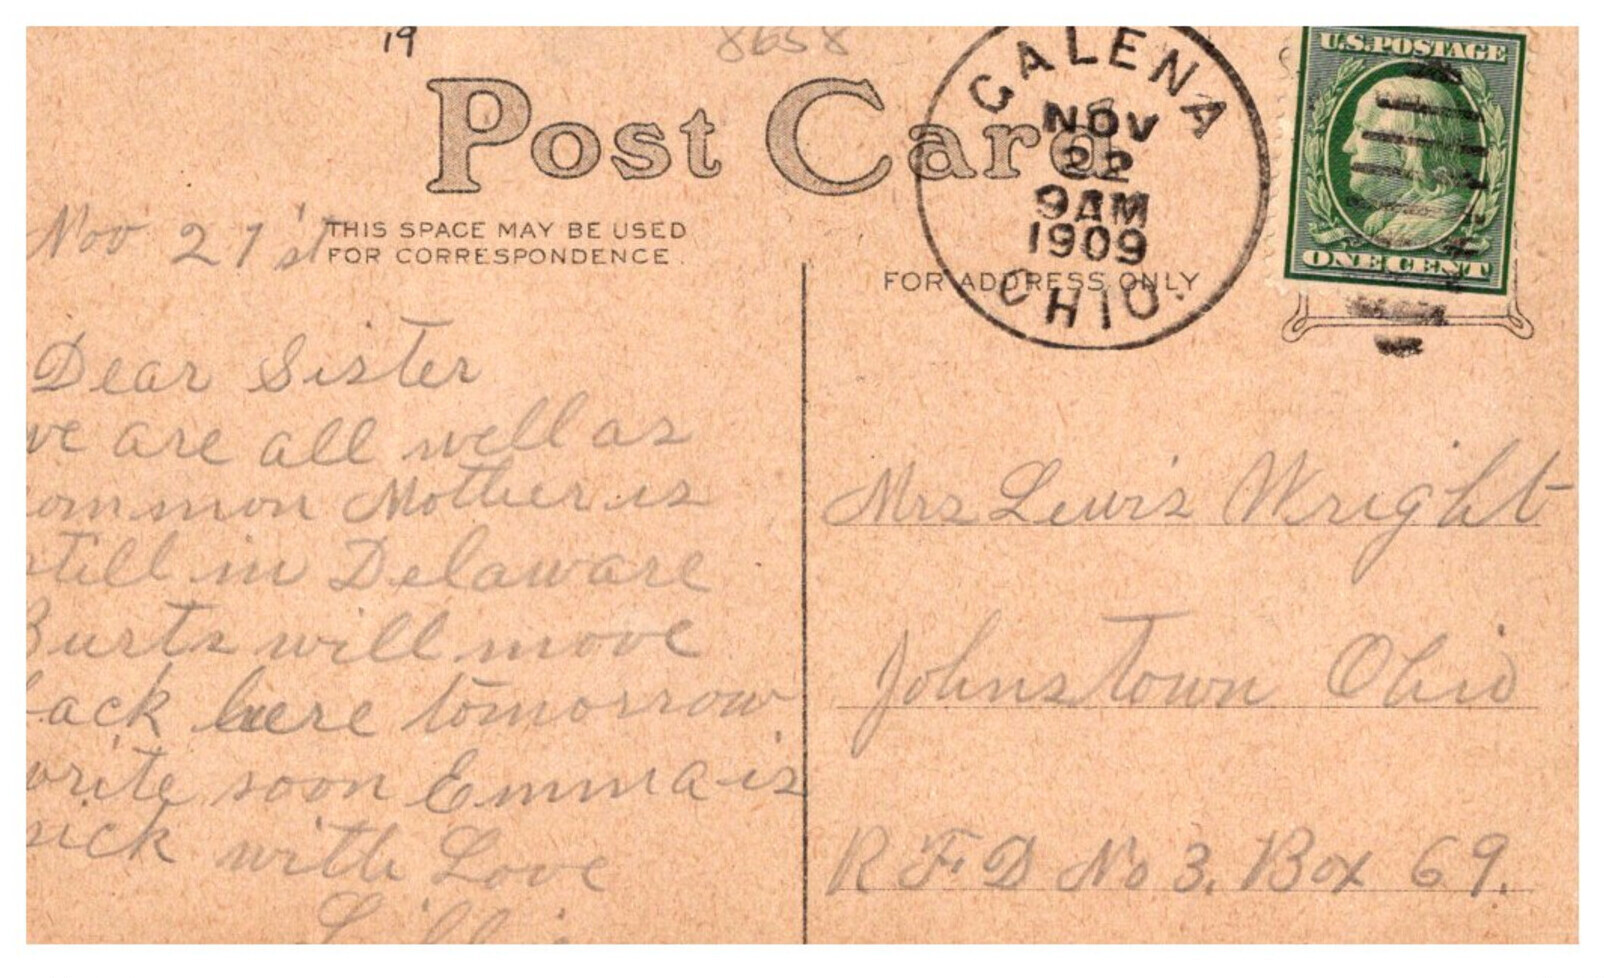 19
8658
Post Card
THIS SPACE MAY BE USED
FOR CORRESPONDENCE.
Nov 21'st
Dear Sister
we are all well as
common Mother is
still in Delaware
Burts will move
back here tomorrow
write soon Emma is
sick with Love
Lillie
GALENA
NOV
22
9AM
1909
OHIO.
U.S.POSTAGE
ONE CENT
FOR ADDRESS ONLY
Mrs Lewis Wright
Johnstown Ohio
R F D No 3. Box 69.